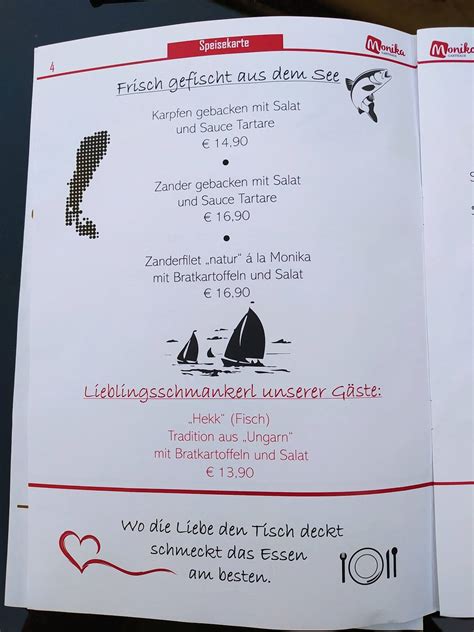 4
Speisekarte
Monika
Monika
Frisch gefischt aus dem See
Karpfen gebacken mit Salat
und Sauce Tartare
€ 14,90
•
Zander gebacken mit Salat
und Sauce Tartare
€ 16,90
•
Zanderfilet „natur" á la Monika
mit Bratkartoffeln und Salat
€ 16,90
Lieblingsschmankerl unserer Gäste:
„Hekk" (Fisch)
Tradition aus „Ungarn"
mit Bratkartoffeln und Salat
€ 13,90
Wo die Liebe den Tisch deckt
schmeckt das Essen
am besten.